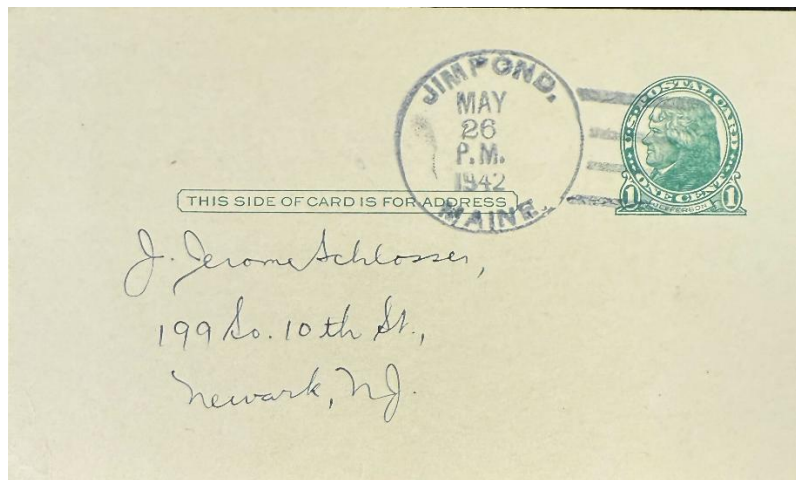 JIM POND.
MAY
26
P.M.
1942
MAINE.
U.S. POSTAL CARD
ONE CENT
1 JEFFERSON 1
THIS SIDE OF CARD IS FOR ADDRESS
J. Jerome Schlosser,
199 So. 10th St.,
Newark, NJ.